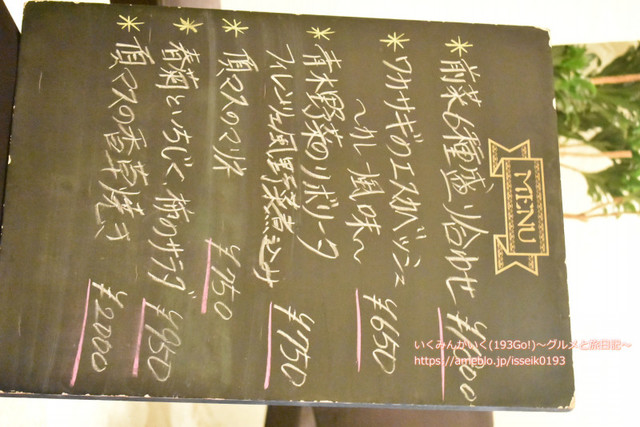 MENU
前菜6種盛り合わせ
ワカサギのエスカベッシュ
〜カレー風味〜 ¥650
青木野菜のリボリータ
フィレンツェ風野菜煮込み ¥750
頂マスのマリネ ¥750
春菊といちじく、柿のサラダ ¥950
頂マスの香草焼き ¥2000
いくみんがいく(193Go!)〜グルメと旅日記〜
https://ameblo.jp/isseik0193